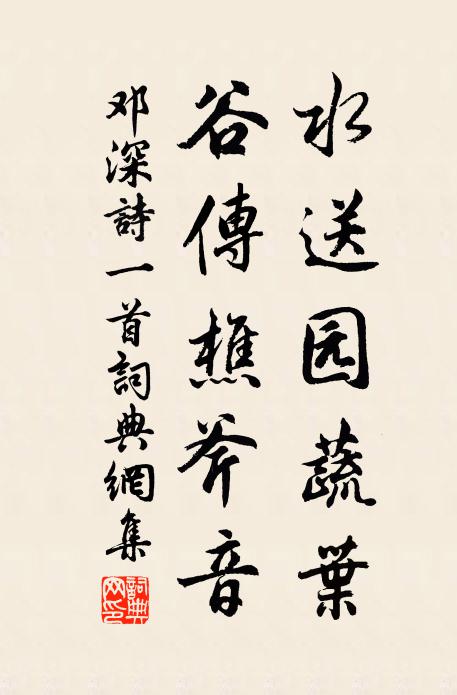 水送园蔬葉
谷傳樵斧音
邓深詩一首詞典網集
詞典網印